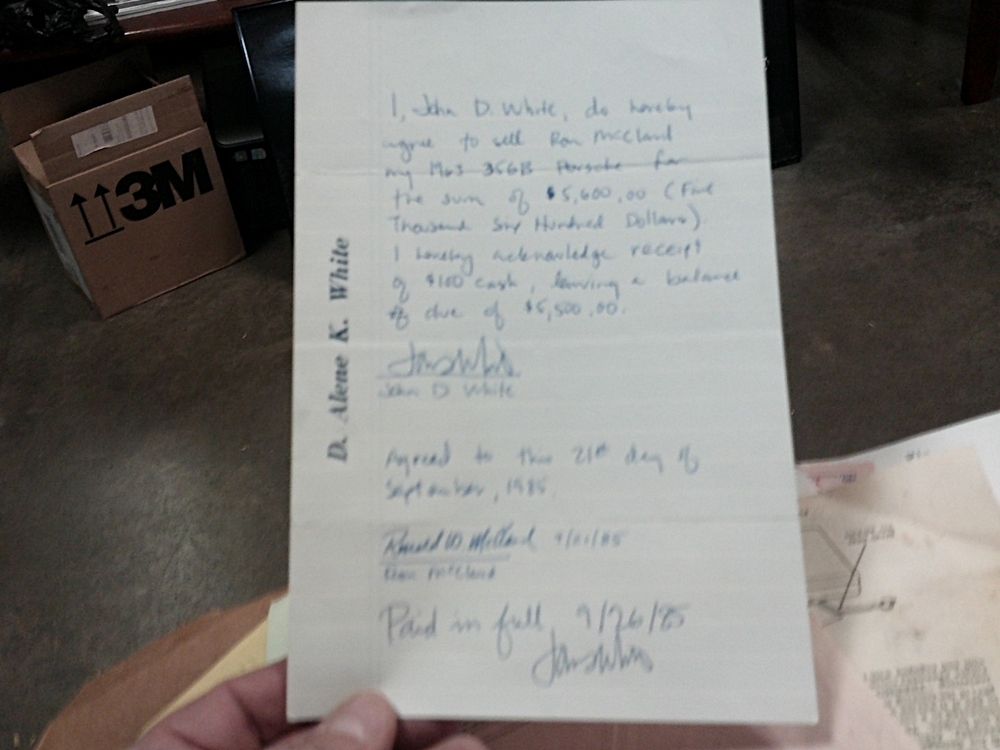 I, John D. White, do hereby
agree to sell Ron McCland
my 1963 356B Porsche for
the sum of $5,600.00 (Five
Thousand Six Hundred Dollars).
I hereby acknowledge receipt
of $100 cash, leaving a balance
due of $5,500.00.
John D White
Agreed to this 21st day of
September, 1985.
Ronald W McCland 9/21/85
Ron McCland
Paid in full 9/26/85
D. Alene K. White
3M